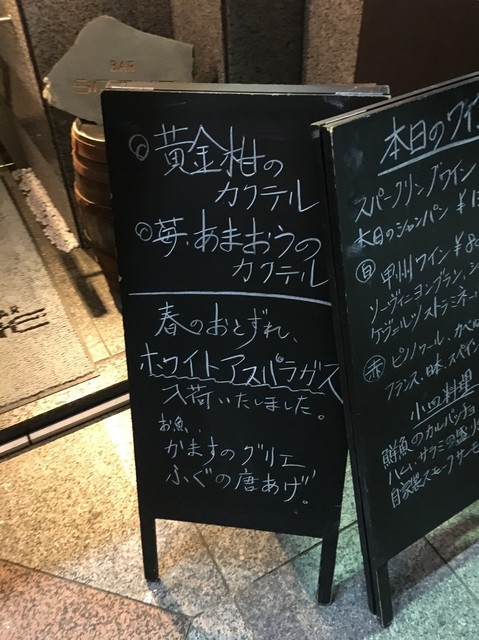 BAR
黄金柑の
カクテル
苺・あまおうの
カクテル
春のおとずれ、
ホワイトアスパラガス
入荷いたしました。
お魚、
かますのグリエ、
ふぐの唐あげ。
本日のワイ
スパークリングワイン
本日のシャンパン ¥1
白 甲州ワイン ¥80
ソーヴィニヨンブラン、シ
ゲヴュルツストラミネー
赤 ピノノワール、カベ
フランス、日本、スペイン
小皿料理
鮮魚のカルパッチョ
ハム・サラミの盛り
自家製スモークサーモ